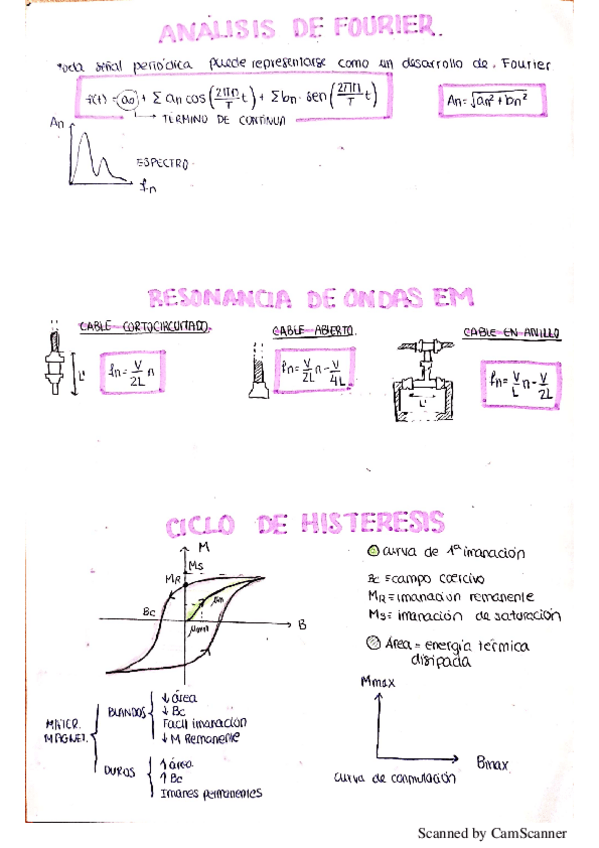 ANALISIS DE FOURIER.
toda señal periódica puede representarse como un desarrollo de Fourier
f(t) = a₀ + Σ an cos (2πn/T t) + Σ bn · sen (2πn/T t)
An = √an² + bn²
→ TÉRMINO DE CONTINUA
An
ESPECTRO
fn
RESONANCIA DE ONDAS EM
CABLE CORTOCIRCUITADO.
CABLE ABIERTO.
CABLE EN ANILLO
L'
fn = V/2L n
fn = V/2L n - V/4L
L'
fn = V/L n - V/2L
CICLO DE HISTERESIS
M
Ms
MR
Bc
B
curva de 1ª imanación
Bc = campo coercivo
MR = imanacion remanente
Ms = imanación de saturación
Área = energía térmica
disipada
MATER.
MAGNET.
BLANDOS
↓ área
↓ Bc
Facil imanacion
↓ M Remanente
DUROS
↑ área
↑ Bc
Imanes permanentes
Mmax
Bmax
curva de conmutación
Scanned by CamScanner